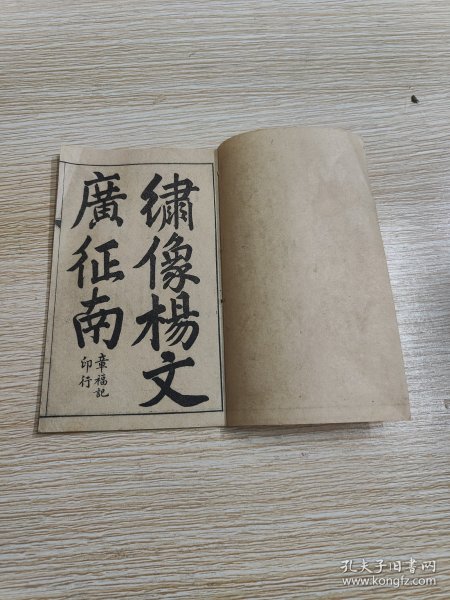 繡像楊文
廣征南
章福記
印行
孔夫子旧书网
www.kongfz.com